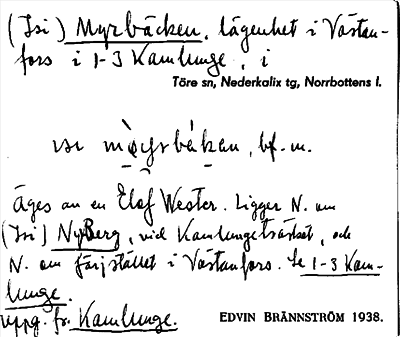 (Isi) Myrbäcken, lägenhet i Västan-
fors i 1-3 Kamlunge, i
Töre sn, Nederkalix tg, Norrbottens l.
bf. m.
äges av en Elof Wester. Ligger N. om
(Isi) Nyberg, vid Kamlungeträsket, och
N. om färjstället i Västanfors. Se 1-3 Kam-
lunge.
uppg. fr. Kamlunge.
EDVIN BRÄNNSTRÖM 1938.